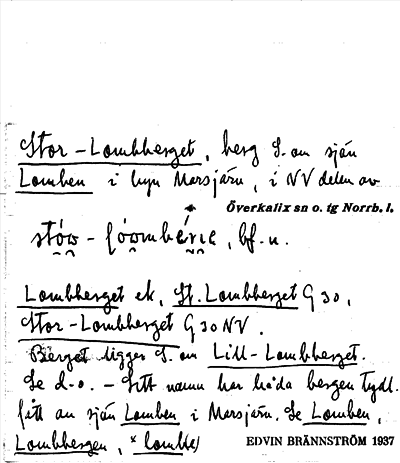 Stor-Lombberget, berg S. om sjön
Lomben i byn Marsjärv, i NV delen av
Överkalix sn o. tg Norrb. l.
bf. n.
Lombberget ek, St. Lombberget G 30,
Stor-Lombberget G 30 NV.
Berget ligger S. om Lill-Lombberget.
Se d.o. – Sitt namn har båda bergen tydl.
fått av sjön Lomben i Marsjärv. Se Lomben,
Lombbergen, * lomb(e)
EDVIN BRÄNNSTRÖM 1937